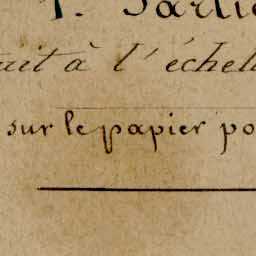 1. Partie
ait à l'échell
sur le papier po